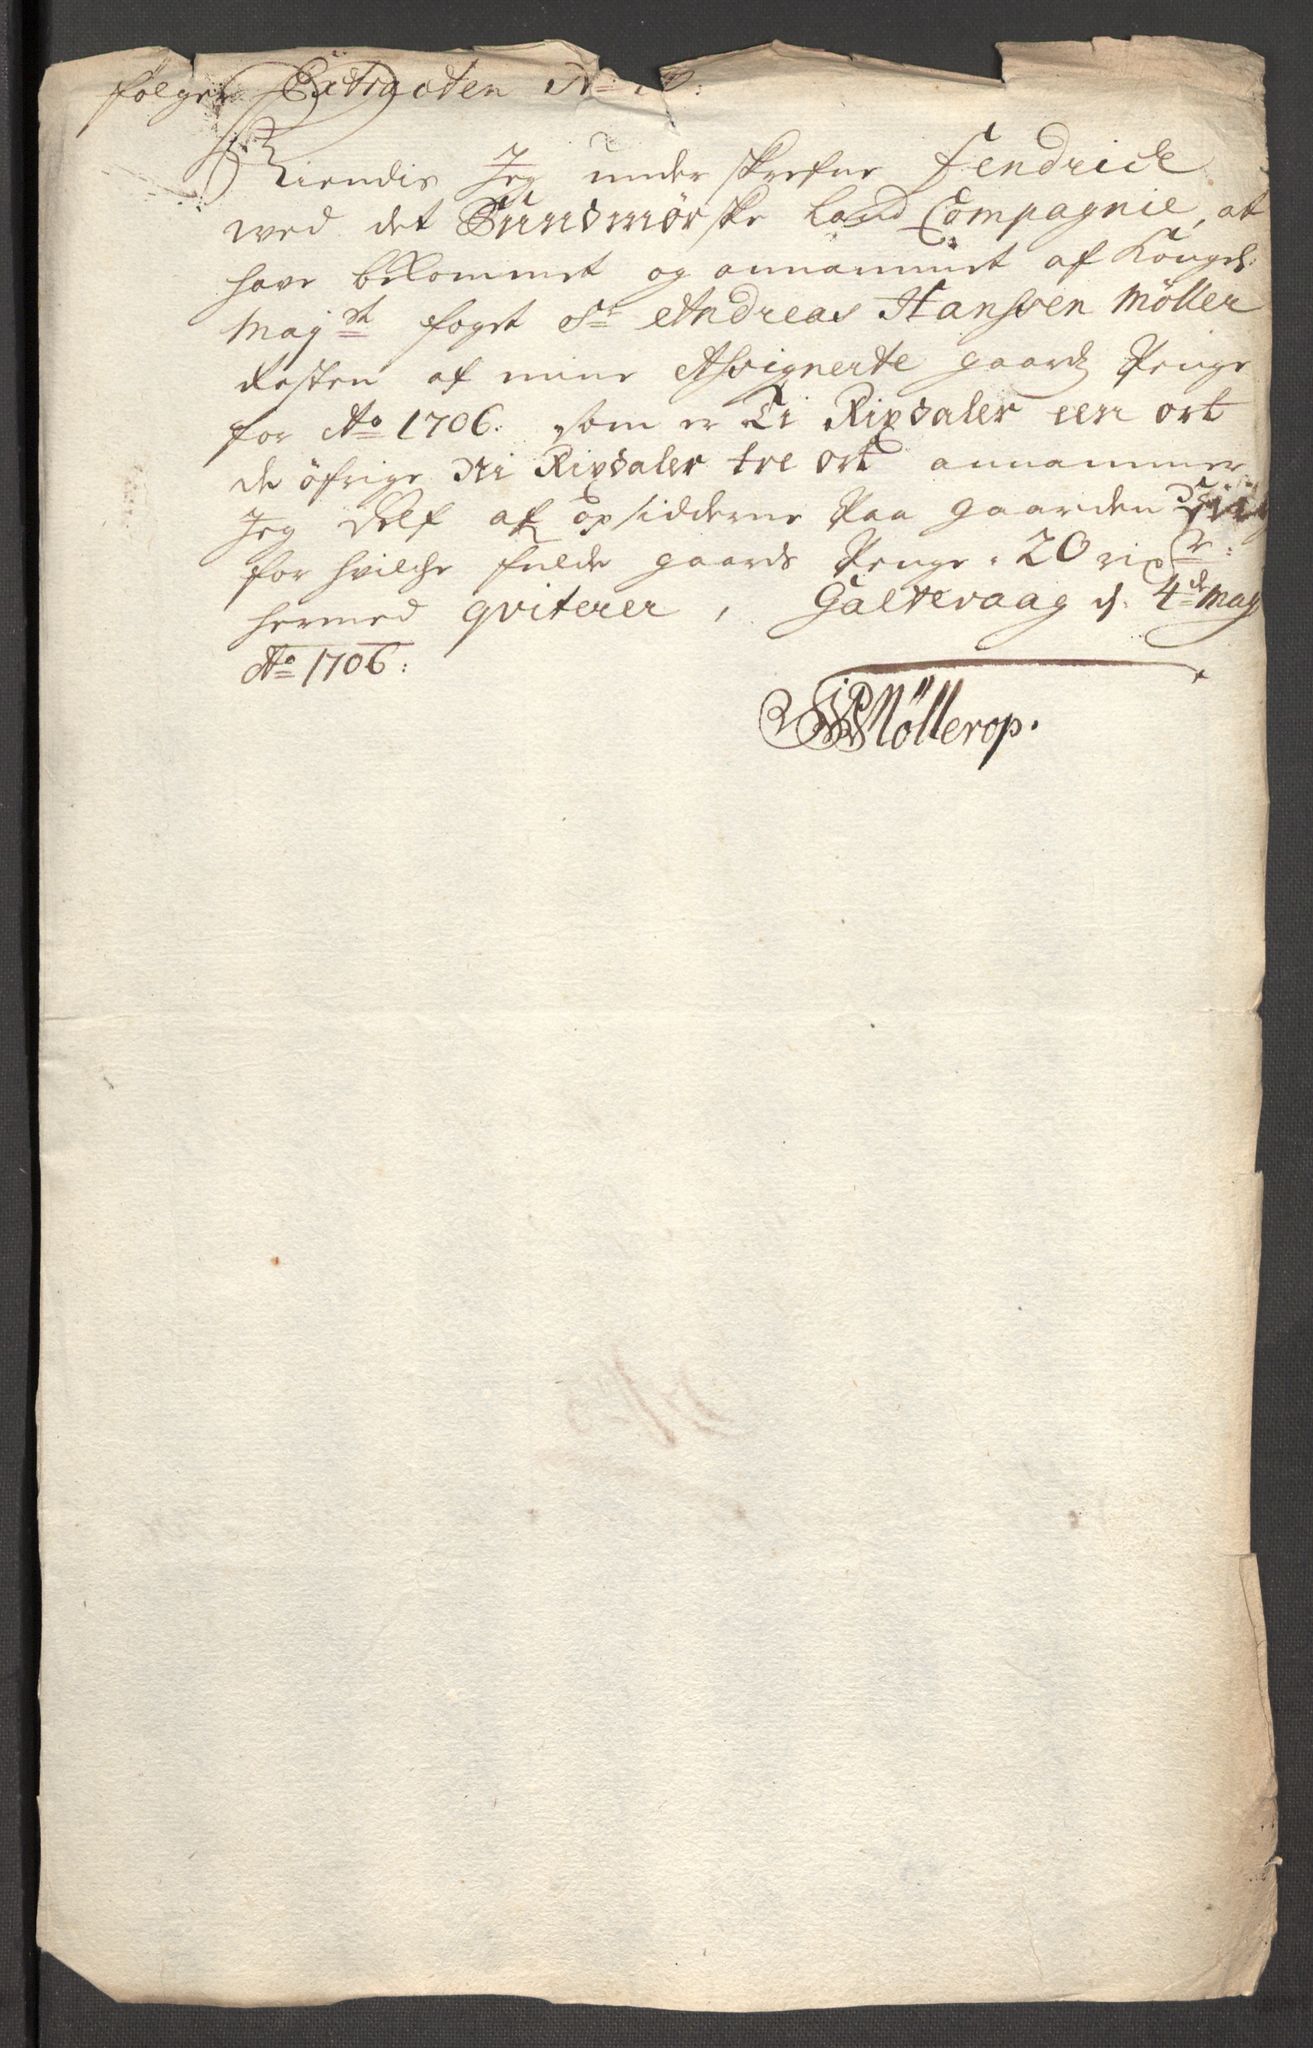 følger Extracten No
Kiendis Jeg underskrefne Fendrick
wed det Sundmørske Land Compagnie, at
have bekommet og annammet af Kongel:
Mayst foget Sr Andreas Hanssen Möller
Resten af mine Assignerte gaards Penge
for Ao 1706: som er Ti Rixdaler een ort
de öfrige Ni Rixdaler tre ort annammer
Jeg Self af opsidderne Paa gaarden
for hvilche fulde gaards Penge 20 rixdr:
hermed qviterer, Galtevaag d: 4de May
Ao 1706:
Möllerop.